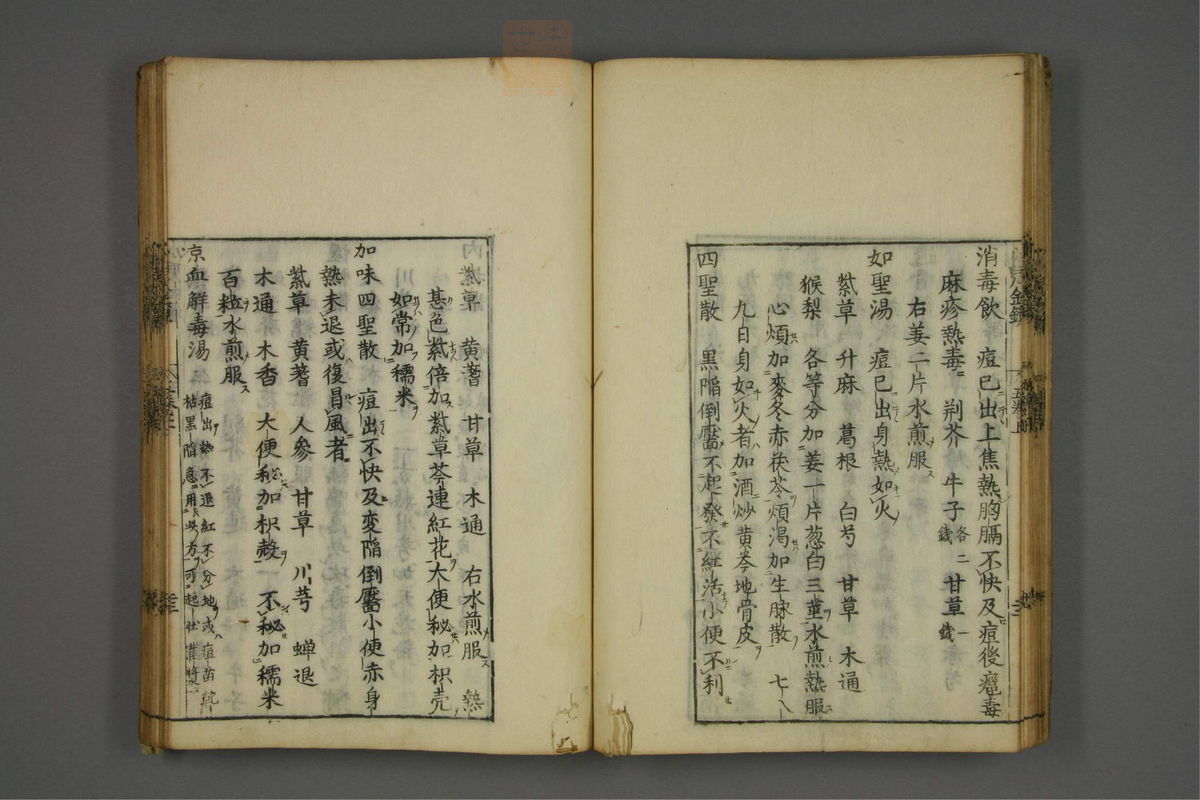 消毒飲　痘已出上焦熱胸膈不快及痘後癰毒
麻疹熱毒　荆芥　牛子各二錢　甘草一錢
右姜二片水煎服
如聖湯　痘已出身熱如火
紫草　升麻　葛根　白芍　甘草　木通
猴梨　各等分加姜一片葱白三莖水煎熱服
心煩加麥冬赤茯苓煩渴加生脉散　七八
九日身如火者加酒炒黄芩地骨皮
四聖散　黒陥倒靨不起發不紅活小便不利
内熱　紫草　黄蓍　甘草　木通　右水煎服　熱
甚色紫倍加紫草芩連紅花大便秘加枳壳
如常加糯米
加味四聖散　痘出不快及变陥倒靨小便赤身
熱未退或復冒風者
紫草　黄蓍　人參　甘草　川芎　蝉退
木通　木香　大便秘加枳殻　不秘加糯米
百粒水煎服
京血解毒湯　痘出熱不退紅不分地或痘苗乾
枯黒陥急用此方可起壮灌漿